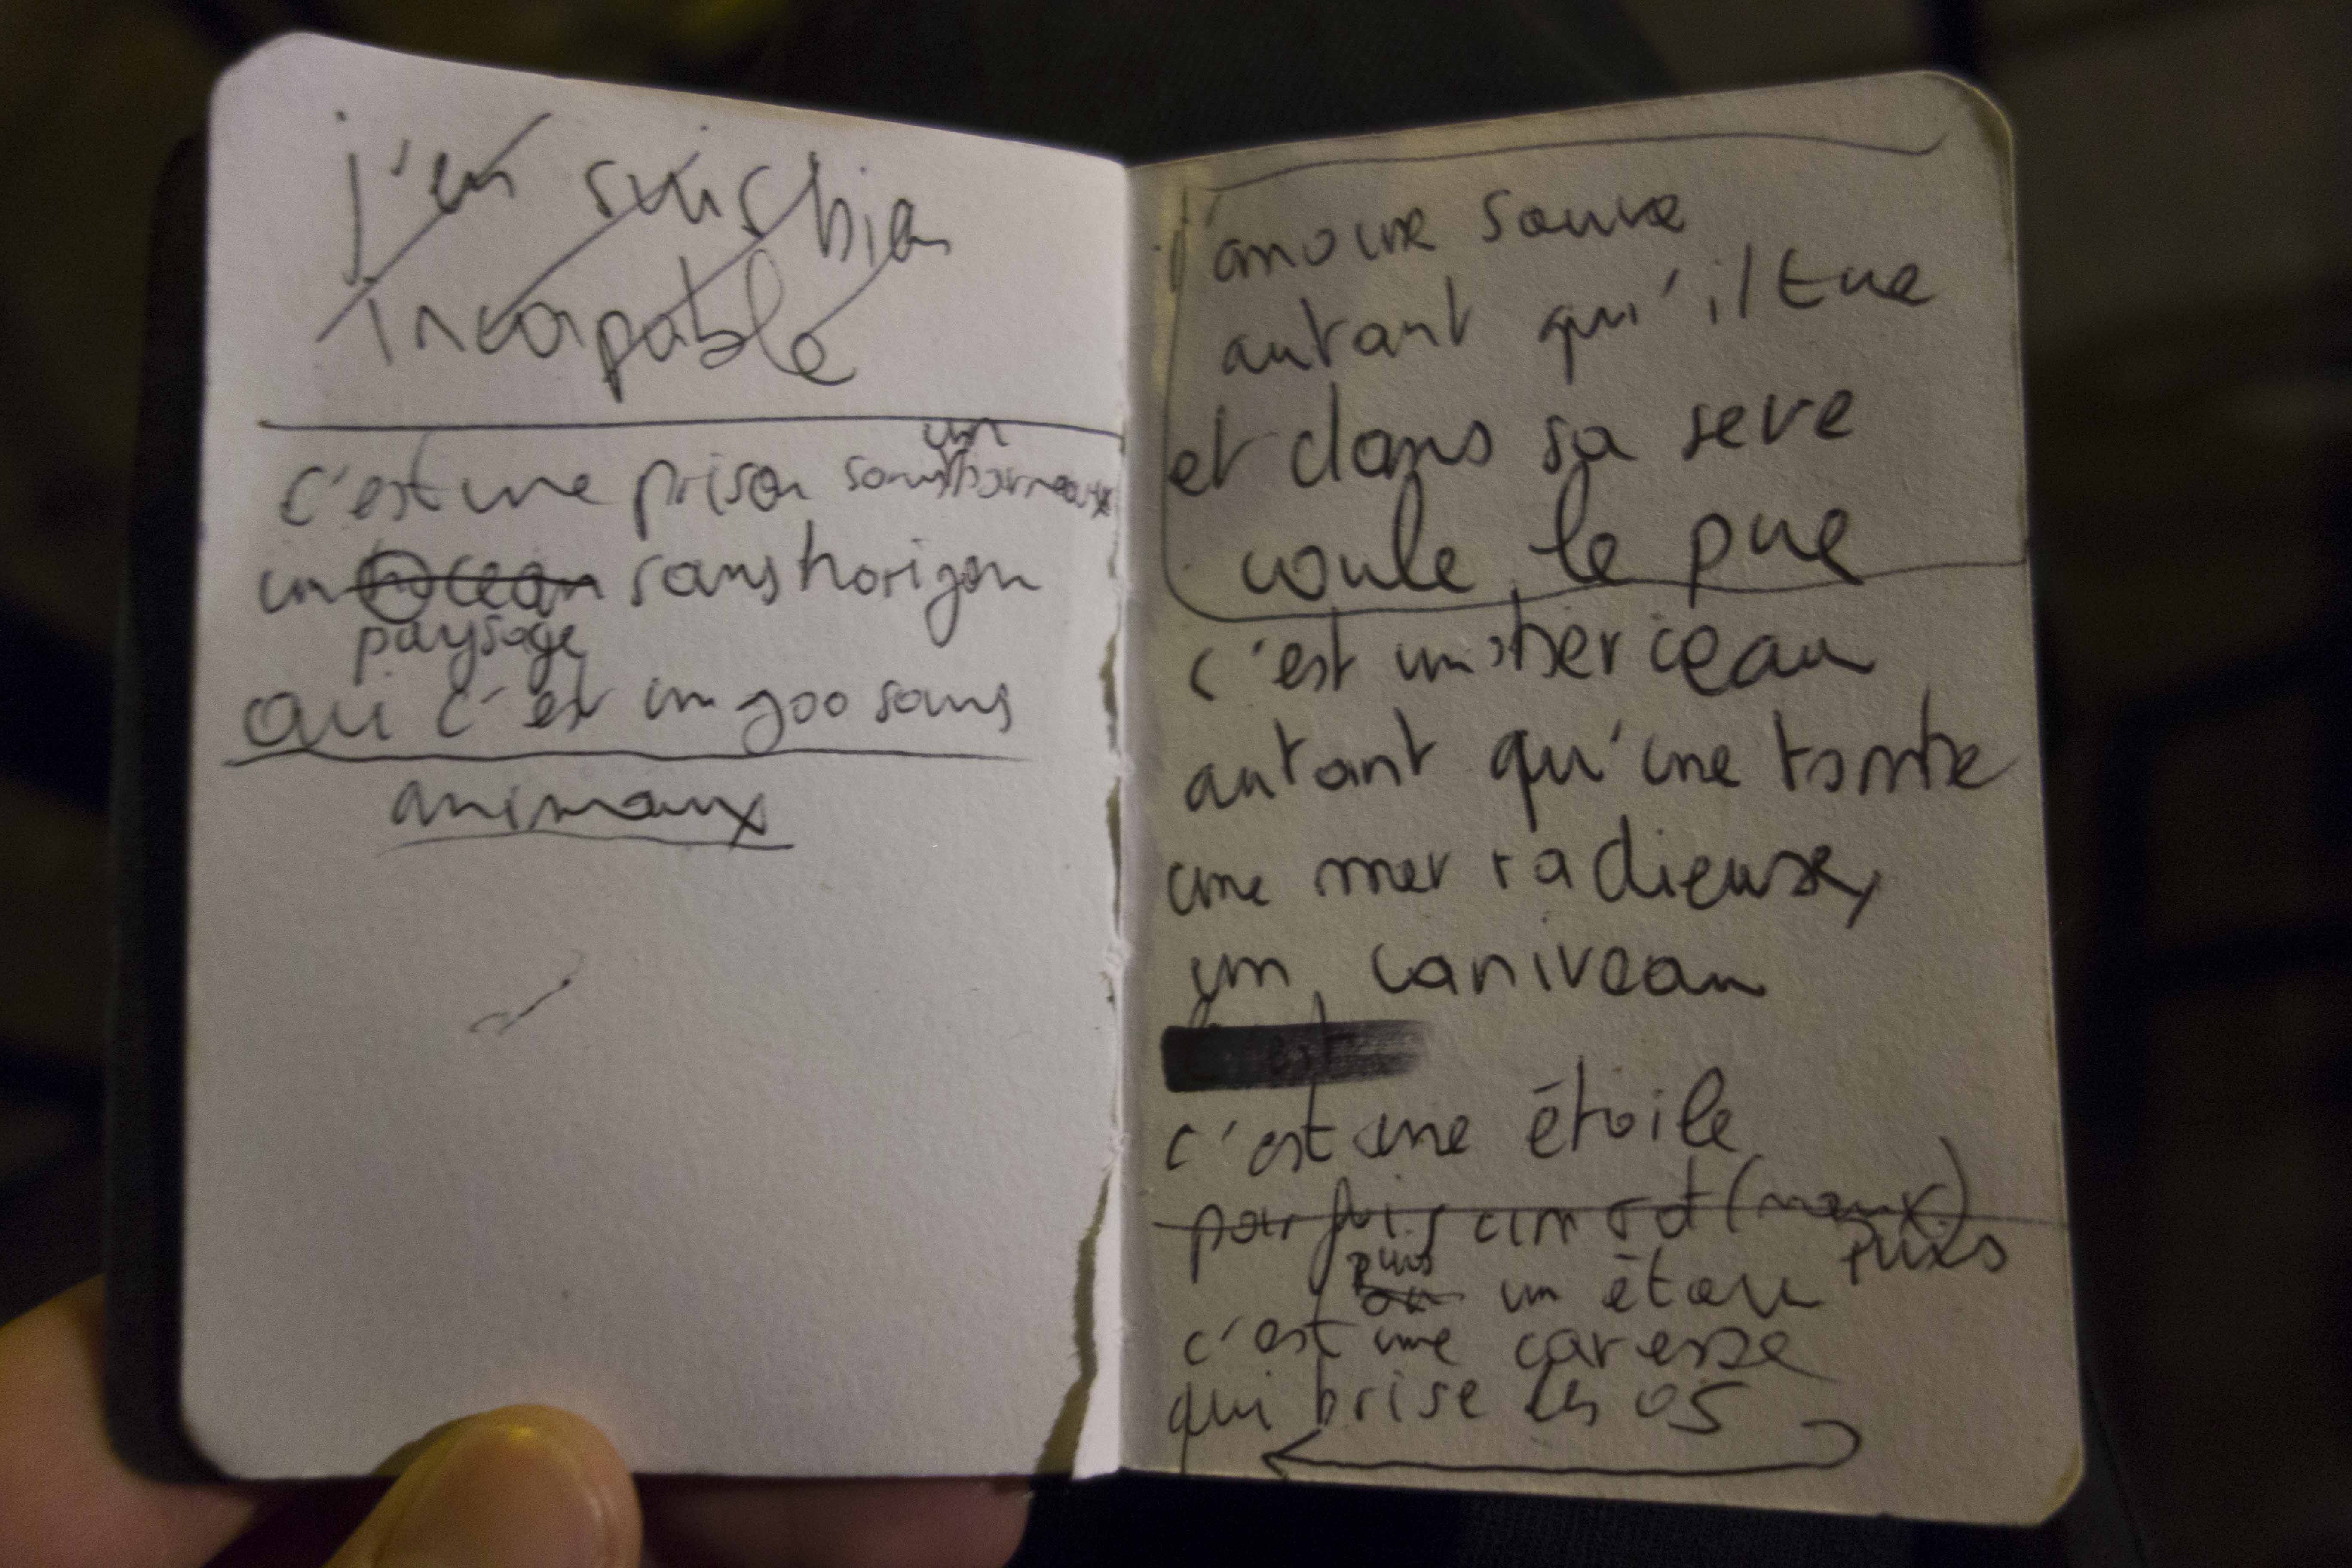 j'en suis bien
incapable
c'est une prison sans un barreaux
un océan sans horizon
paysage
ou c'est un zoo sans
animaux
l'amour sauve
autant qu'il tue
et dans sa seve
coule le pue
c'est un berceau
autant qu'une tombe
une mer radieuse,
un caniveau
c'est une étoile
parfois un sot (maux)
puis
puis
ou un étau
c'est une caresse
qui brise les os